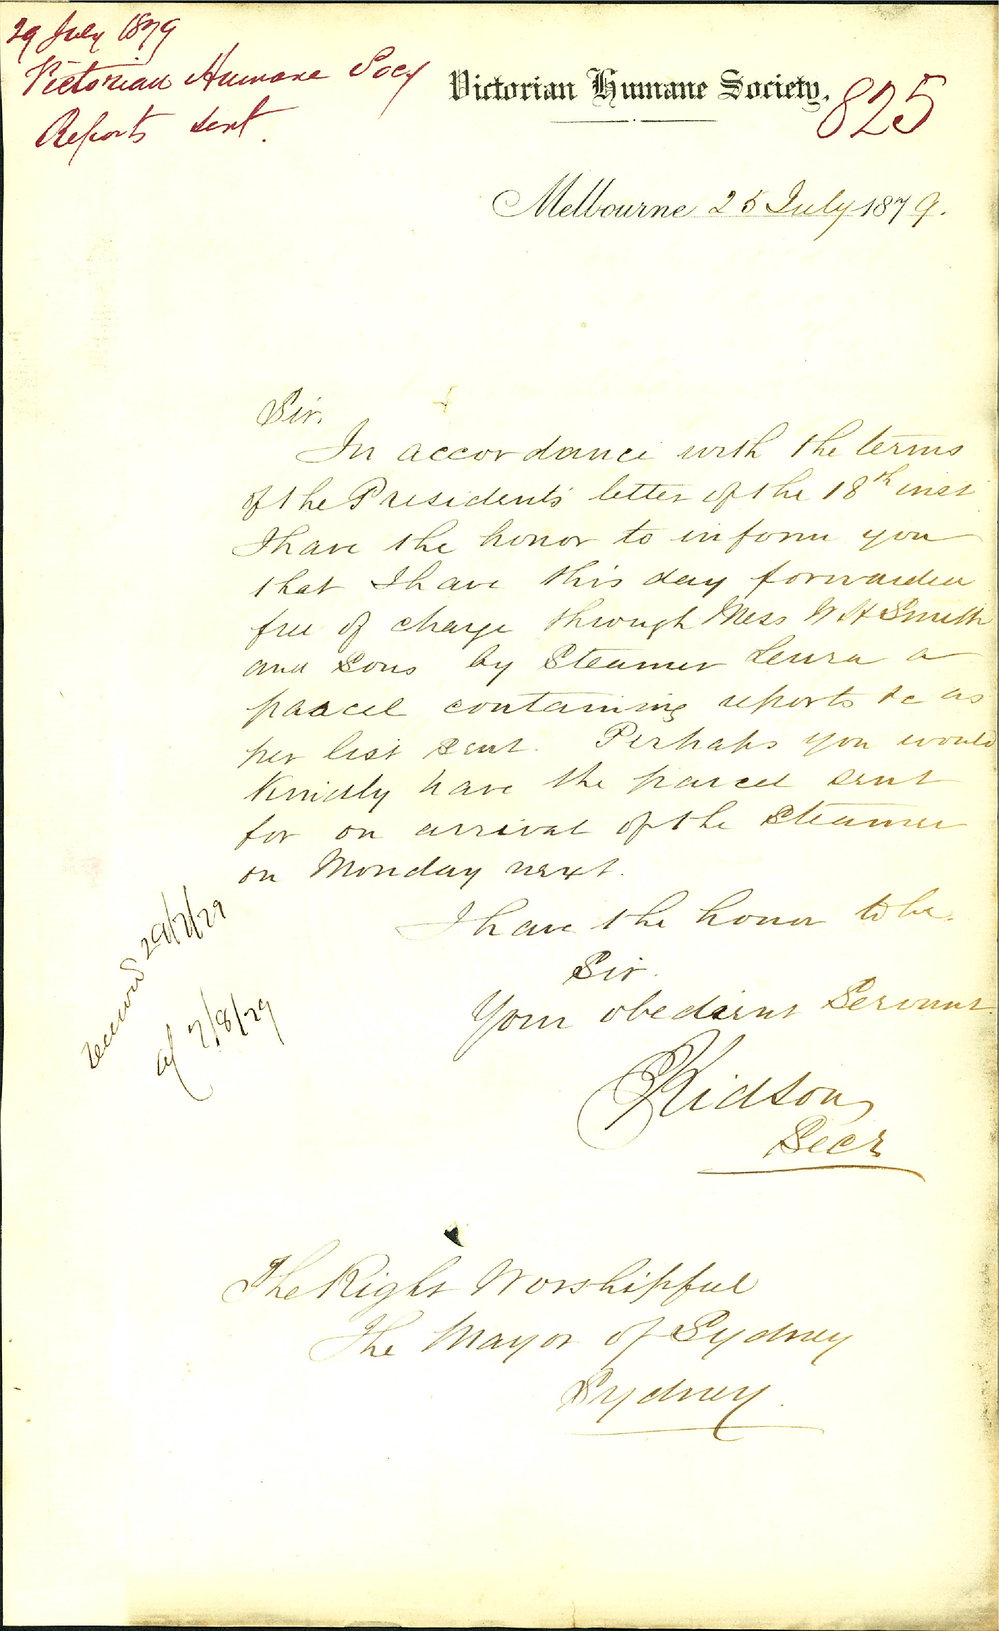 29 July 1879
Victorian Humane Socy
Reports sent.
Victorian Humane Society.
825
Melbourne 25 July 1879.
Sir,
In accordance with the terms
of the Presidents letter of the 18th inst
I have the honor to inform you
that I have this day forwarded
free of charge through Mess W H Smith
and Sons by Steamer Leura a
parcel containing reports &c as
per list sent. Perhaps you would
kindly have the parcel sent
for on arrival of the Steamer
on Monday next.
I have the honor to be.
Sir.
Your obedient Servant
Kidson
Secy
received 29/7/79
7/8/79
The Right Worshipful
The Mayor of Sydney
Sydney.